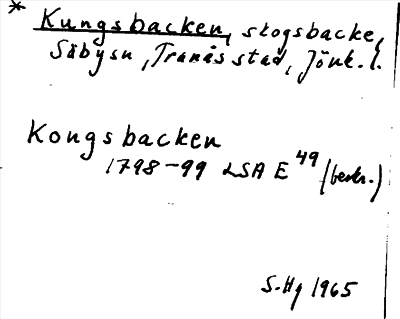 * Kungsbacken, skogsbacke,
Säbysn, Tranås stad, Jönk. l.
Kongsbacken
1798-99 LSA E 49 (beskr.)
S. Hg 1965